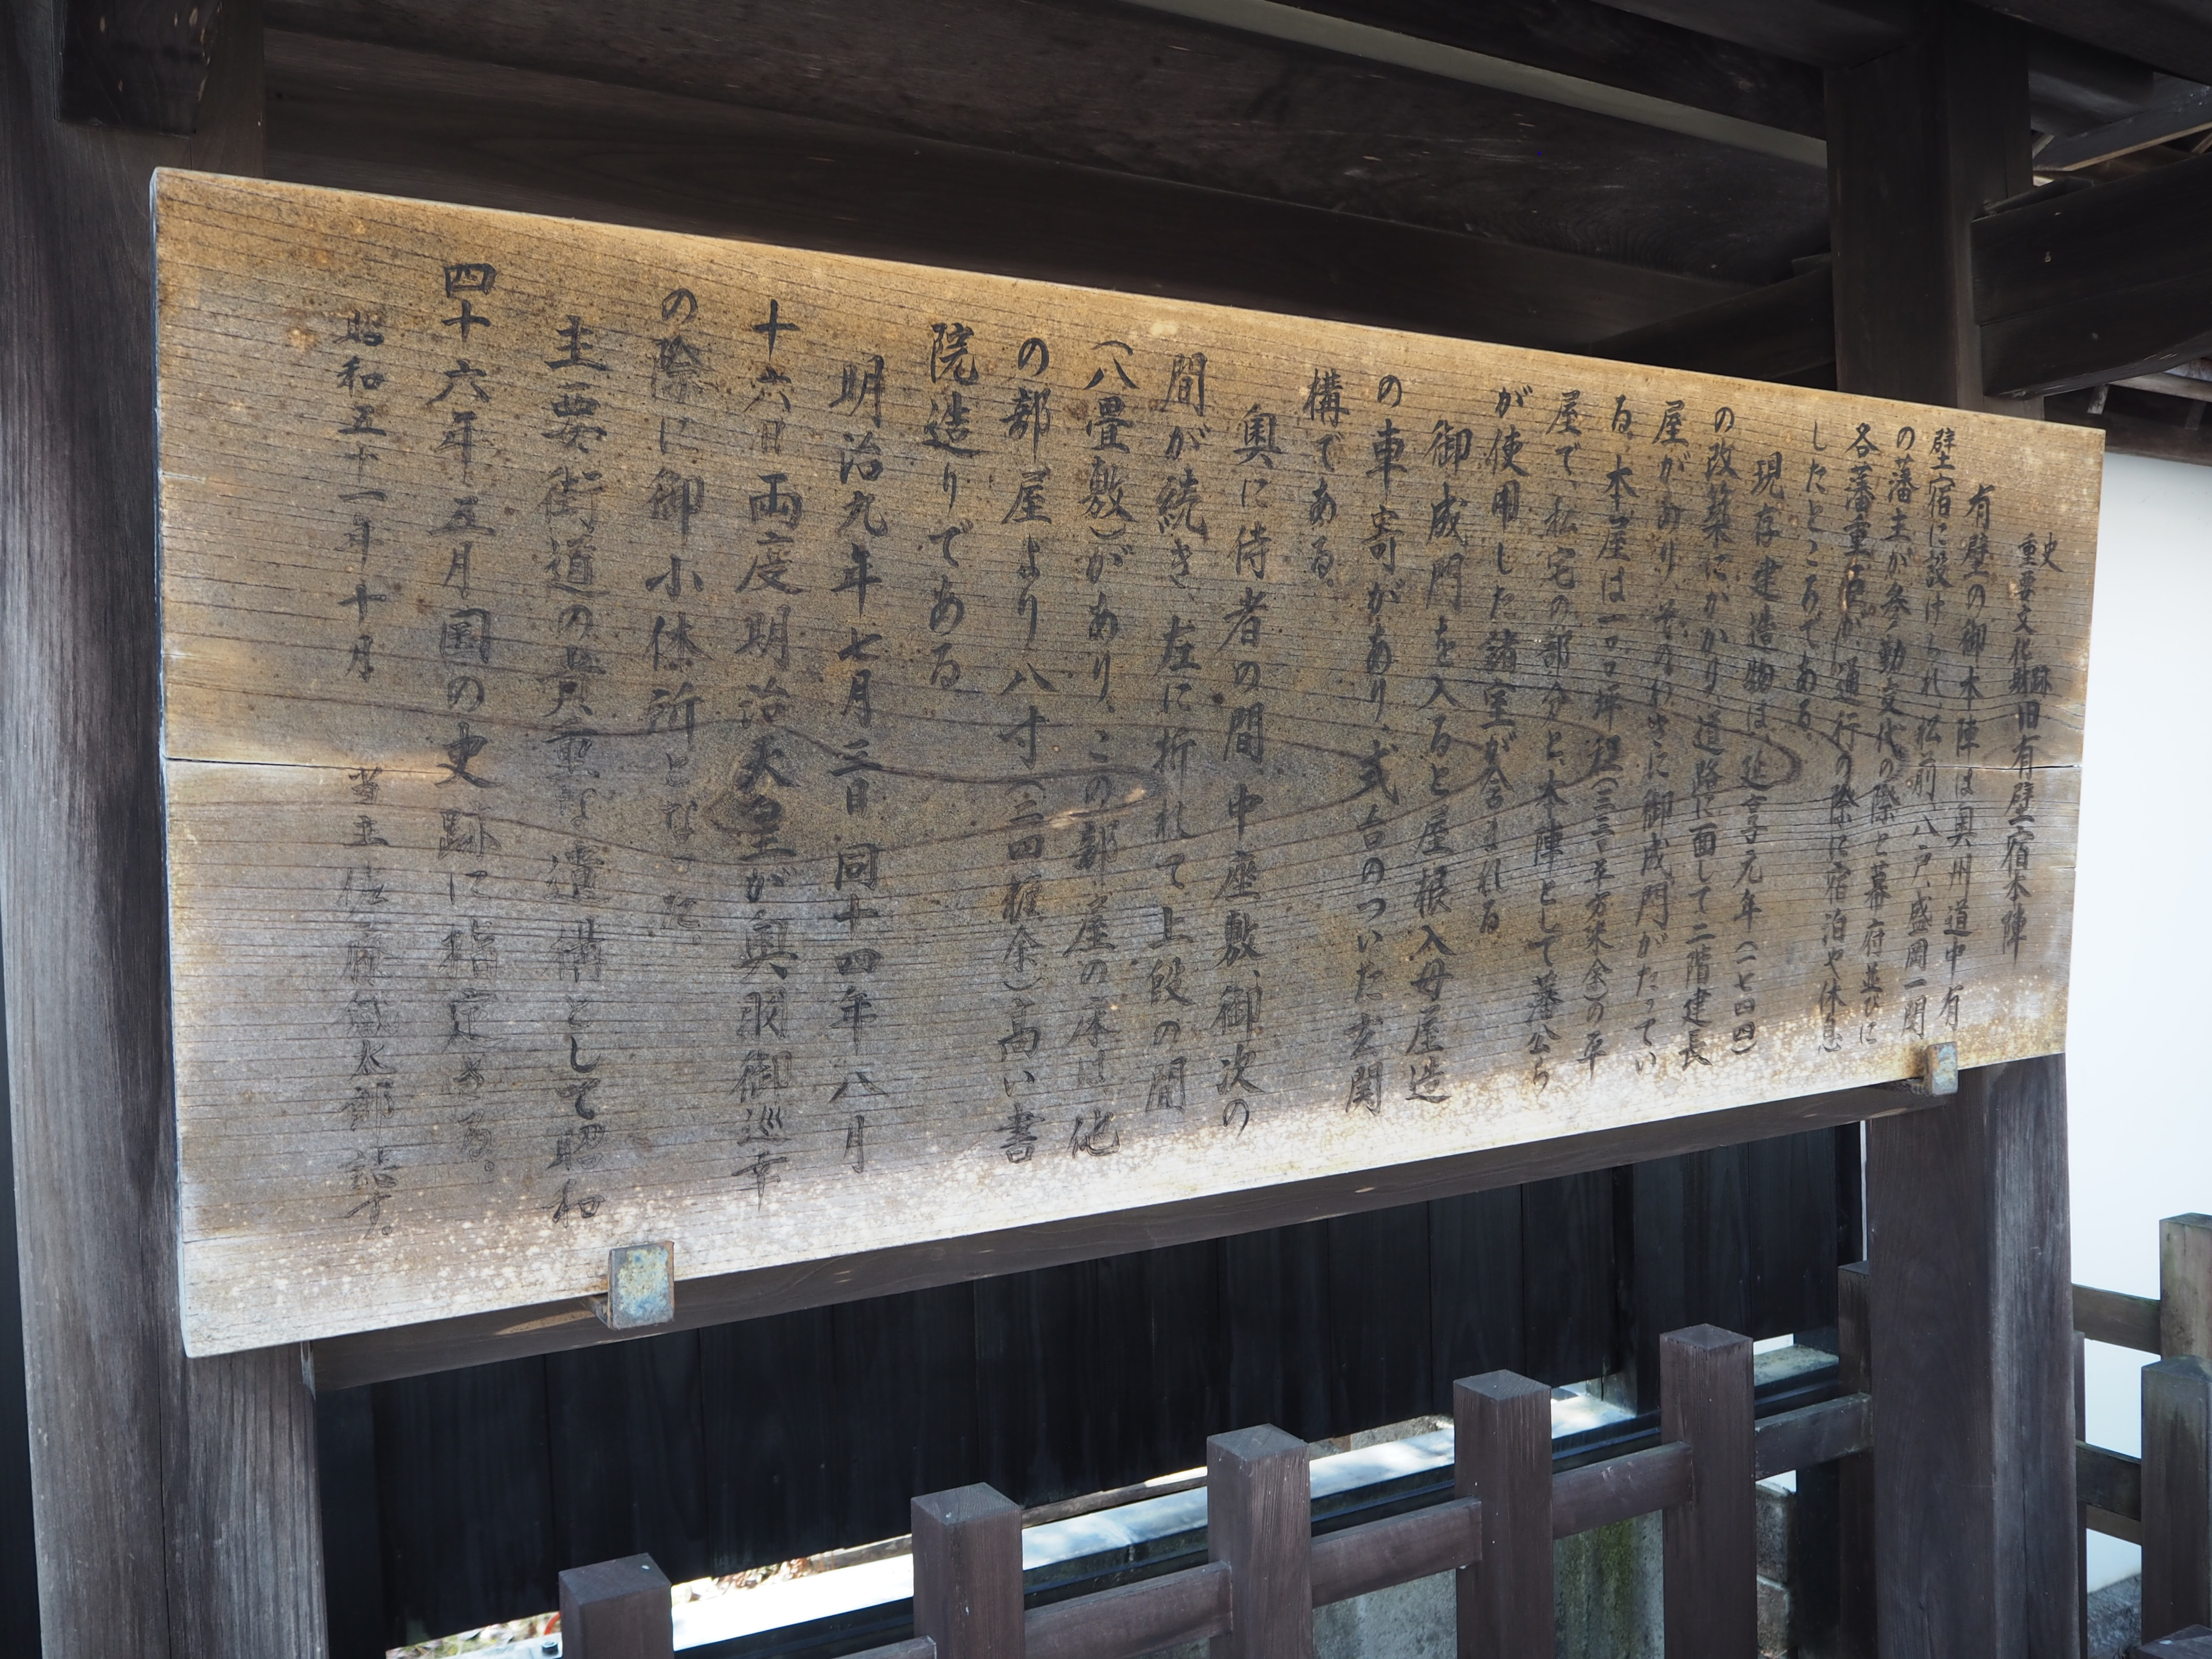 史跡
重要文化財旧有壁宿本陣
有壁の御本陣は奥州道中有
壁宿に設けられ、松前、八戸、盛岡一関
の藩主が参勤交代の際と幕府並びに
各藩重臣が通行の際に宿泊や休息
したところである。
現存建造物は、延享元年(一七四四)
の改築にかかり、道路に面して二階建長
屋があり、そのわきに御成門がたってい
る。本屋は一〇〇坪程(三三〇平方米余)の平
屋で、私宅の部分と、本陣として藩公ら
が使用した諸室が含まれる
御成門を入ると屋根入母屋造
の車寄があり、式台のついた玄関
構である。
奥に侍者の間、中座敷、御次の
間が続き、左に折れて上段の間
(八畳敷)があり、この部屋の床は他
の部屋より八寸(二四糎余)高い書
院造りである
明治九年七月三日同十四年八月
十六日両度明治天皇が奥羽御巡幸
の際に御小休所となった。
主要街道の貴重な遺構として昭和
四十六年五月国の史跡に指定さる。
昭和五十一年十月 当主佐藤 太郎誌す。